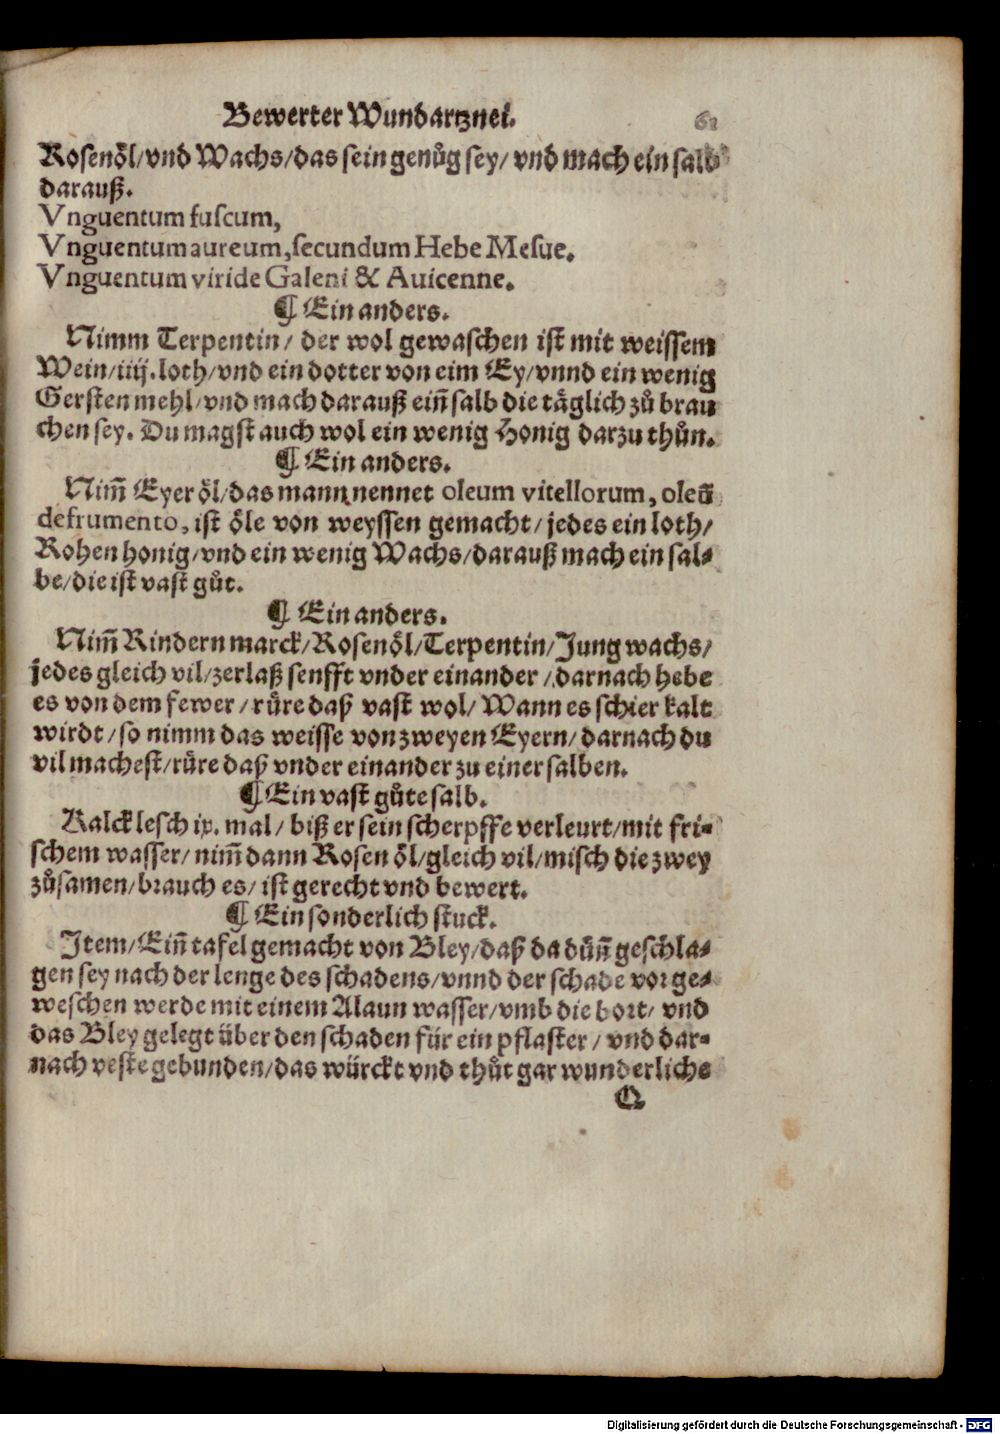 Bewerter Wundartznei. 61
Rosenöl/vnd Wachs/das sein genůg sey/ vnd mach ein salb
darauß.
Vnguentum fuscum,
Vnguentum aureum, secundum Hebe Mesue.
Vnguentum viride Galeni & Auicenne.
¶ Ein anders.
Nimm Terpentin/ der wol gewaschen ist mit weissem
Wein/iiij.loth/vnd ein dotter von eim Ey/vnnd ein wenig
Gersten mehl/vnd mach darauß eiñ salb die täglich zů brau
chen sey. Du magst auch wol ein wenig Honig darzu thůn.
¶ Ein anders.
Nim̃ Eyer öl/das mann nennet oleum vitellorum, oleũ
defrumento, ist öle von weyssen gemacht/jedes ein loth/
Rohen honig/vnd ein wenig Wachs/darauß mach ein sal-
be/die ist vast gůt.
¶ Ein anders.
Nim̃ Rindern marck/Rosenöl/Terpentin/Jung wachs/
jedes gleich vil/zerlaß senfft vnder einander/darnach hebe
es von dem fewer/rüre daß vast wol/Wann es schier kalt
wirdt/so nimm das weisse von zweyen Eyern/darnach du
vil machest/rüre daß vnder einander zu einer salben.
¶ Ein vast gůte salb.
Kalck lesch ix. mal/ biß er sein scherpffe verleurt/mit fri-
schem wasser/nim̃ dann Rosen öl/gleich vil/misch die zwey
zůsamen/brauch es/ist gerecht vnd bewert.
¶ Ein sonderlich stuck.
Item/Eiñ tafel gemacht von Bley/daß da düñ geschla-
gen sey nach der lenge des schadens/vnnd der schade vor ge-
weschen werde mit einem Alaun wasser/vmb die bort/ vnd
das Bley gelegt über den schaden für ein pflaster/ vnd dar-
nach veste gebunden/das würckt vnd thůt gar wunderliche
Q
Digitalisierung gefördert durch die Deutsche Forschungsgemeinschaft - DFG